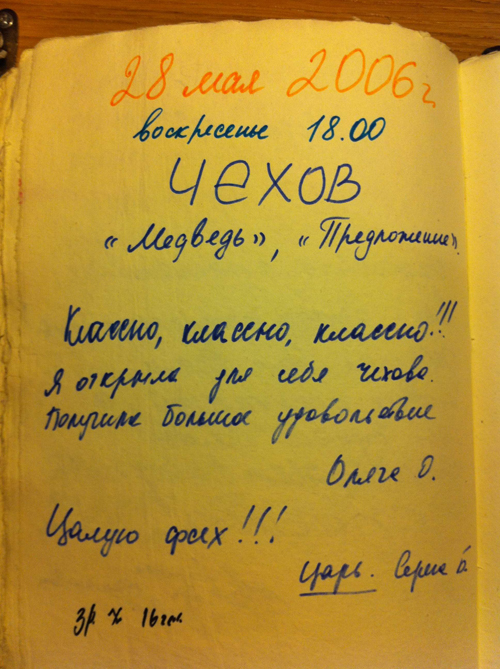 28 мая 2006г.
воскресенье 18.00
ЧЕХОВ
«Медведь», «Предложение».
Классно, классно, классно!!!
Я открыла для себя Чехова.
Получила большое удовольствие
О.
Цалую фсех!!!
Царь.